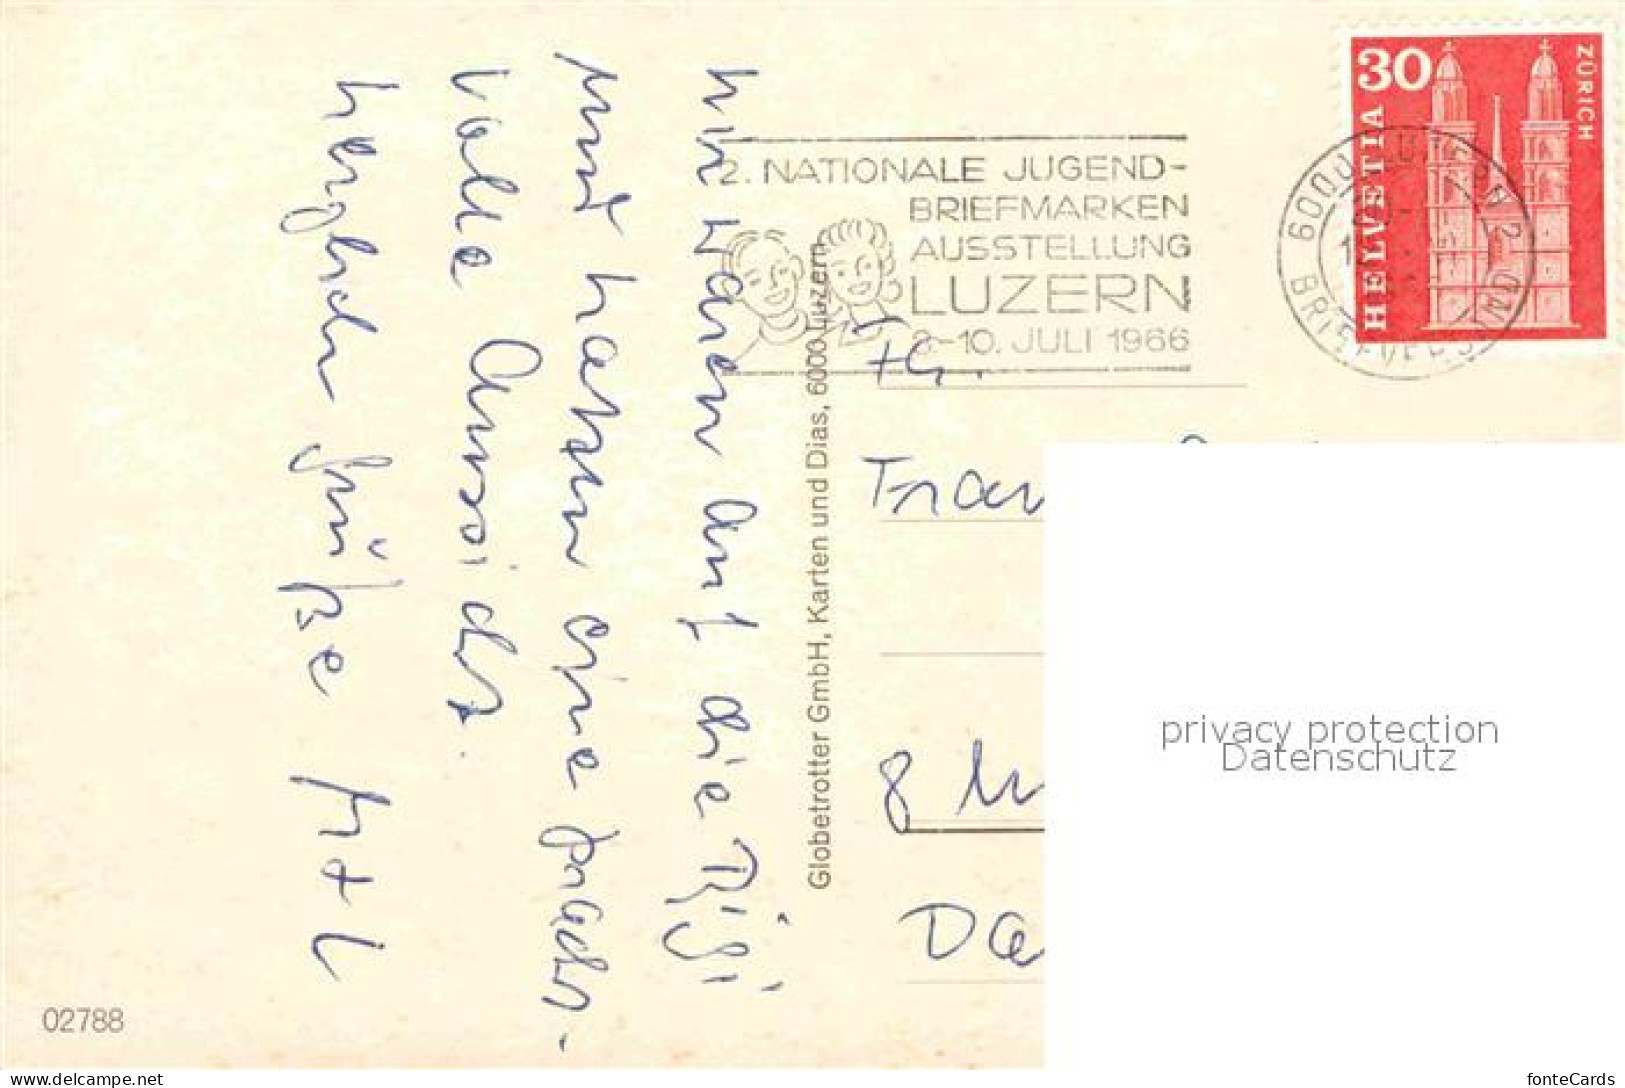 30
HELVETIA
ZÜRICH
2. NATIONALE JUGEND-
BRIEFMARKEN
AUSSTELLUNG
LUZERN
8-10. JULI 1966
6000 LUZERN 2
BRIEFVERSAND
Wir waren auf die Rigi
und hatten eine pracht-
volle Aussicht.
herzliche Grüße H+L
Globetrotter GmbH, Karten und Dias, 6000 Luzern
Frau
8
Da
privacy protection
Datenschutz
02788
the best of ansichtskarten-center.de
fonteCards